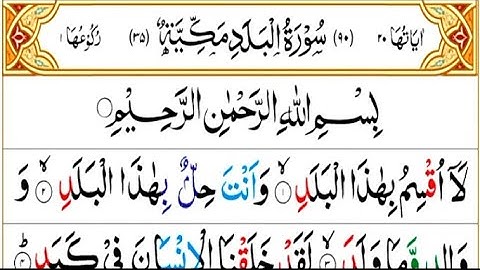 اٰيَاتُهَا ٢٠ (٩٠) سُوْرَةُ الْبَلَدِ مَكِّيَّةٌ (٣٥) رُكُوْعُهَا ١
بِسْمِ اللهِ الرَّحْمٰنِ الرَّحِيْمِ
لَاۤ اُقْسِمُ بِهٰذَا الْبَلَدِۙ ۱ وَاَنْتَ حِلٌّۢ بِهٰذَا الْبَلَدِۙ ۲ وَ
وَالِدٍ وَّمَا وَلَدَۙ ۳ لَقَدْ خَلَقْنَا الْاِنْسَانَ فِيْ كَبَدٍؕ ۴